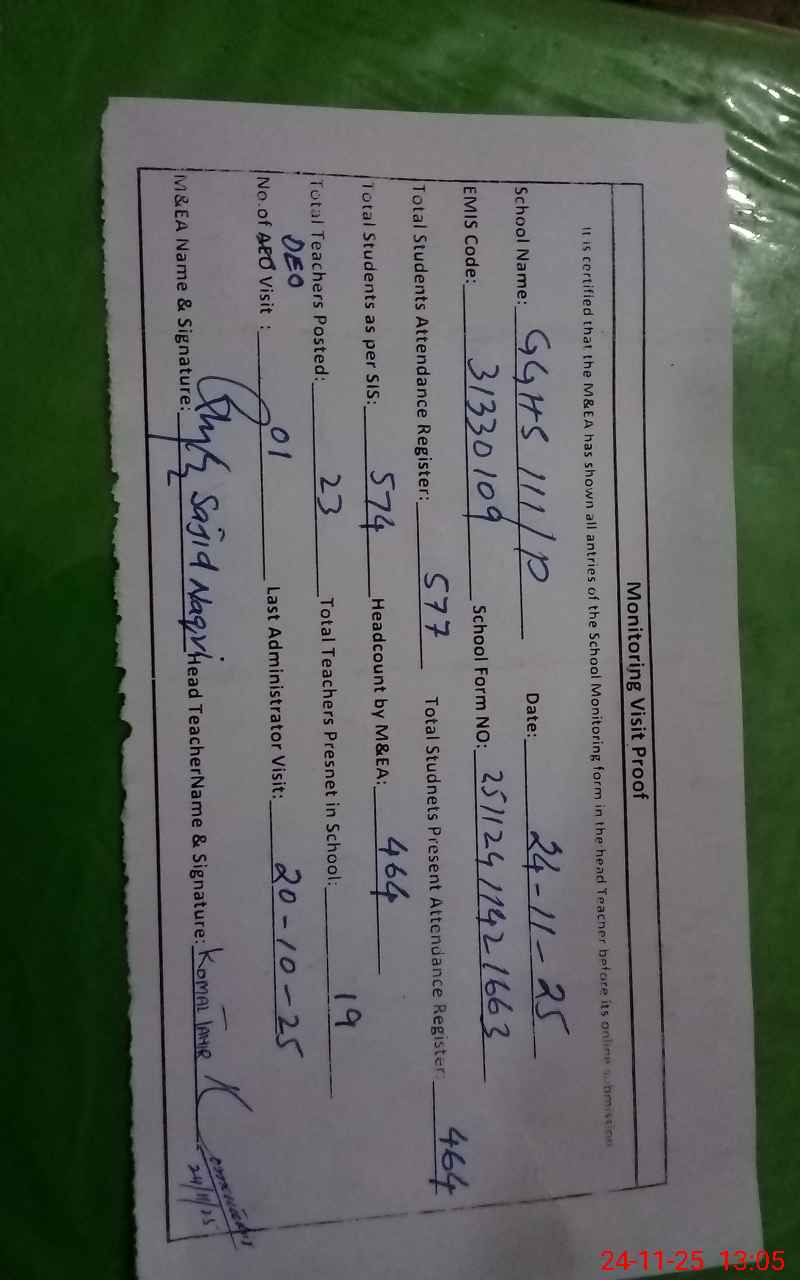 Monitoring Visit Proof
It is certified that the M&EA has shown all antries of the School Monitoring form in the head Teacher before its online submission
School Name: GGHS 111/P Date: 24-11-25
EMIS Code: 31330109 School Form NO: 25112411421663
Total Students Attendance Register: 577 Total Studnets Present Attendance Register: 464
Total Students as per SIS: 574 Headcount by M&EA: 464
Total Teachers Posted: 23 Total Teachers Presnet in School: 19
DEO
No.of AEO Visit : 01 Last Administrator Visit: 20-10-25
M&EA Name & Signature: Sajid Naqvi Head TeacherName & Signature: KOMAL TAHIR
24/11/25
24-11-25 13:05